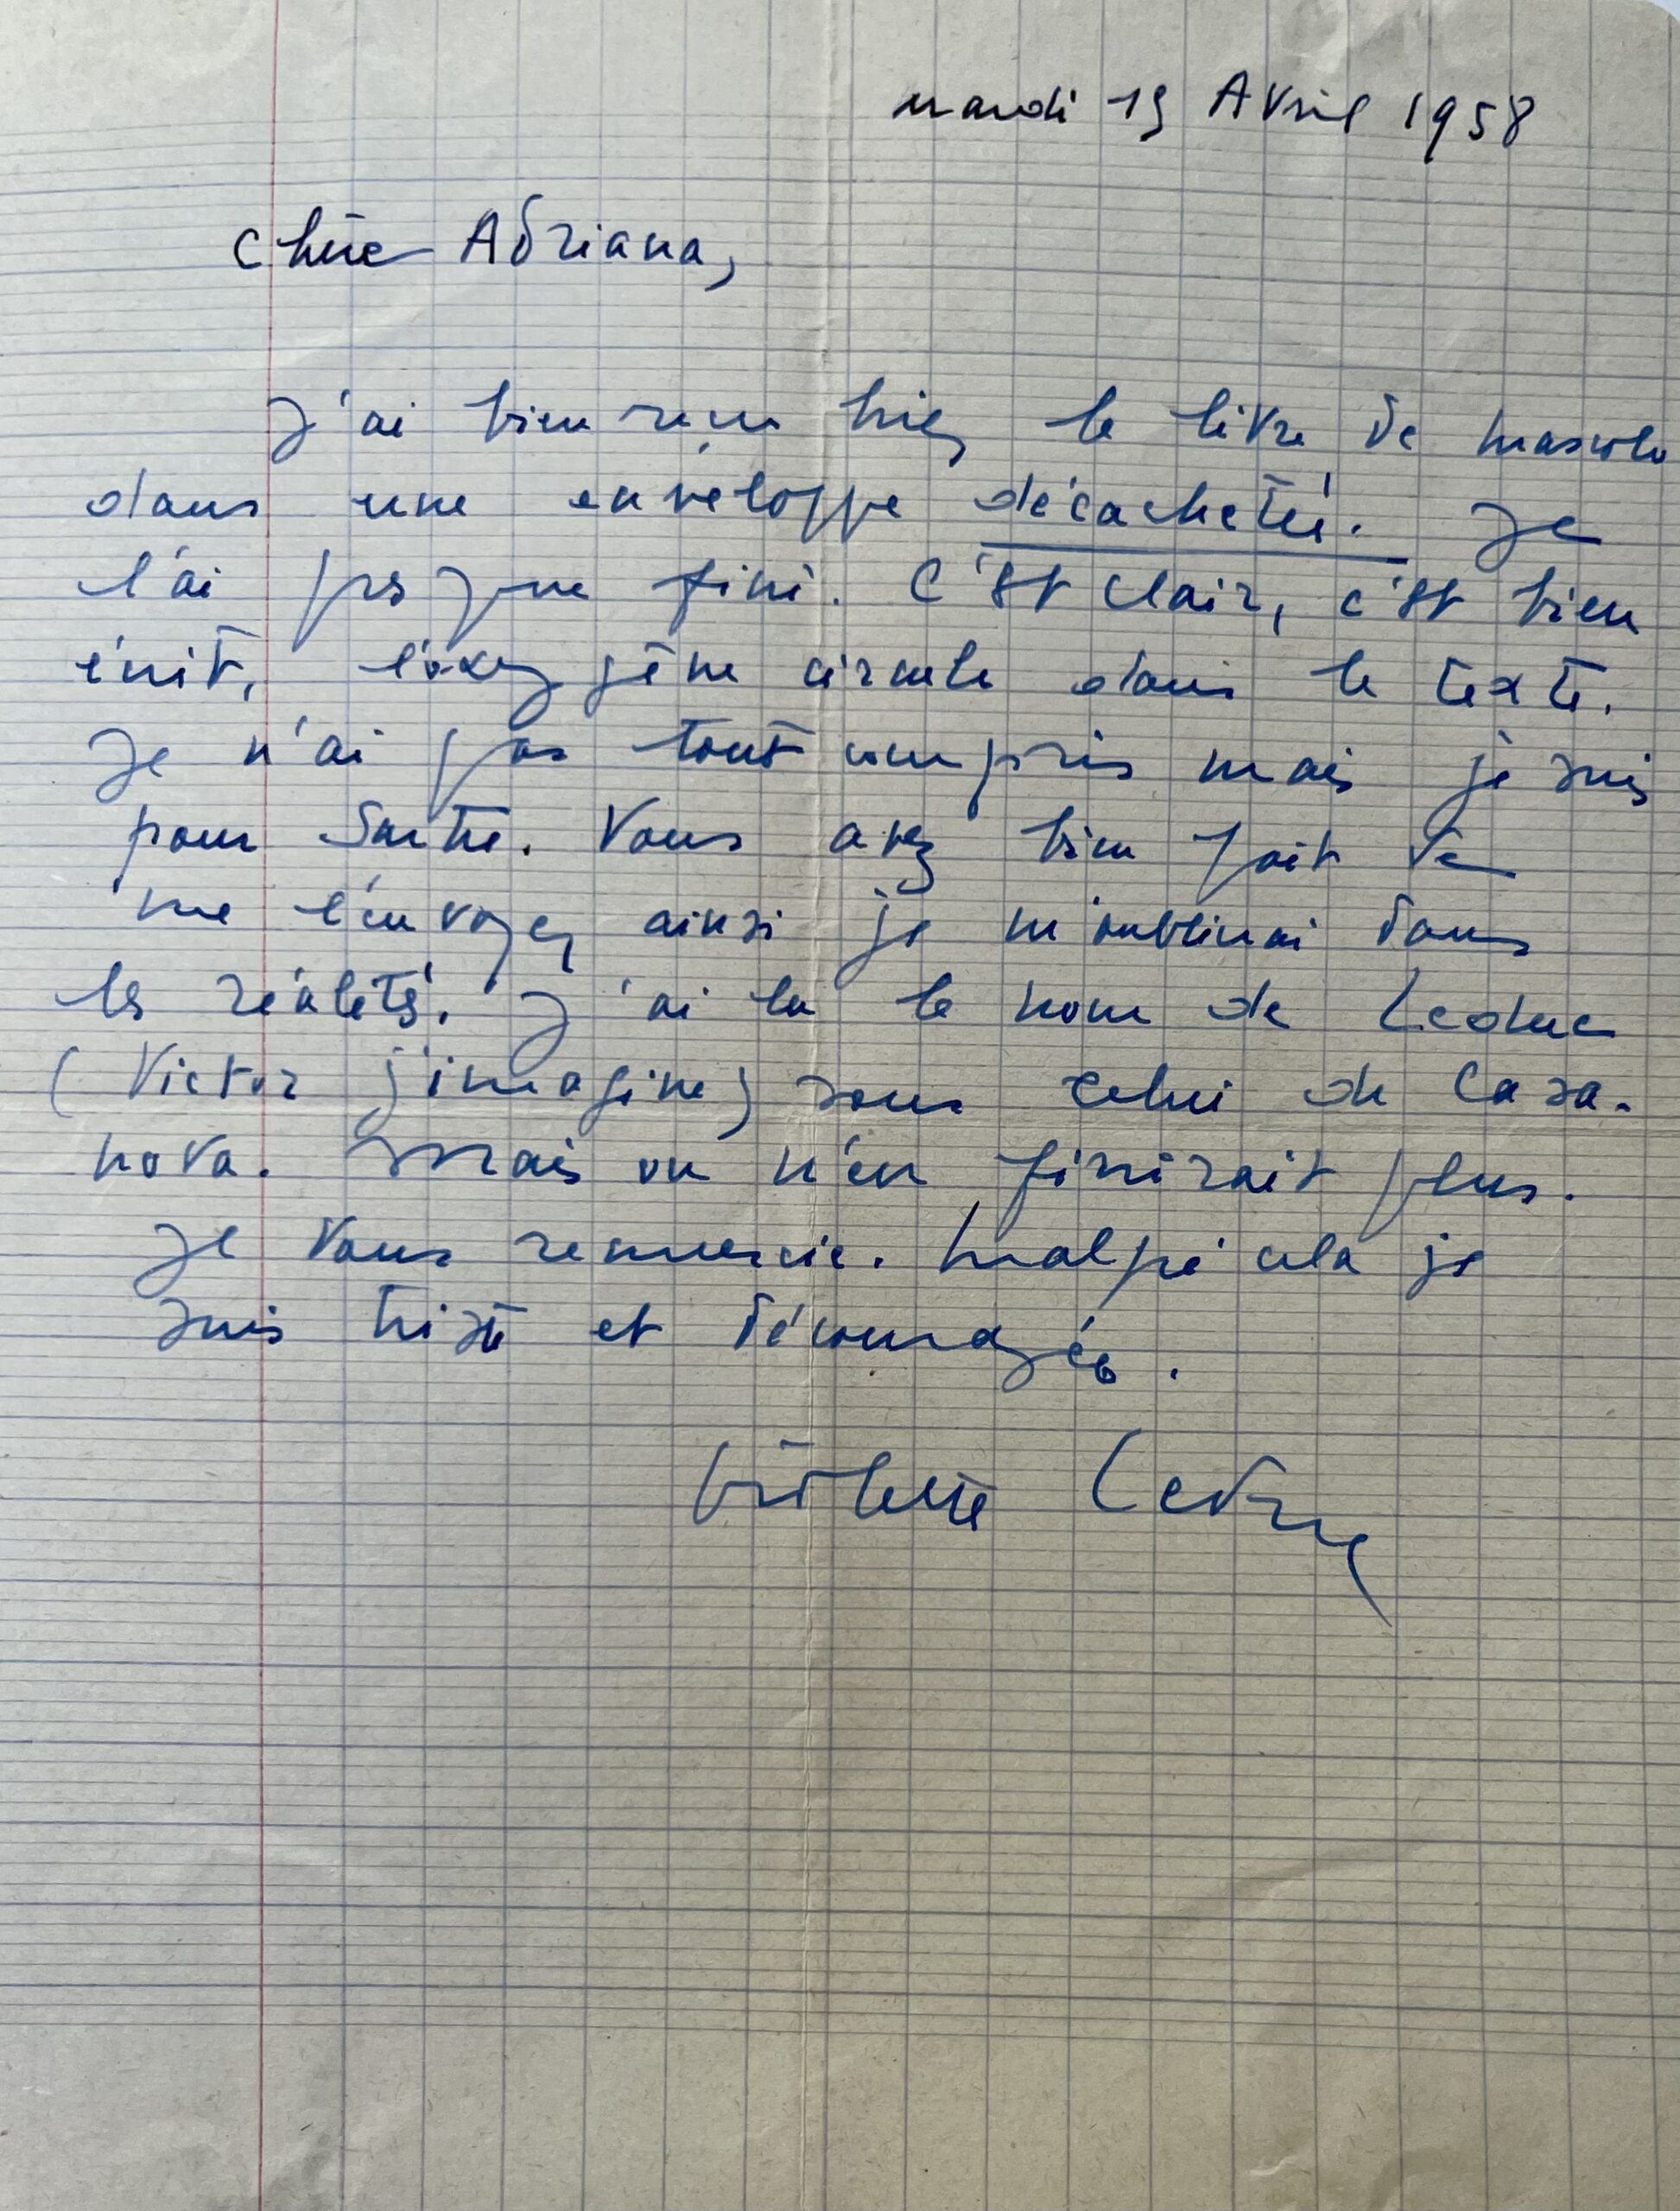 mardi 15 Avril 1958
Chère Adriana,
J'ai bien reçu hier le livre de Mascolo
dans une enveloppe décachetée. Je
l'ai presque fini. C'est clair, c'est bien
écrit, l'oxygène circule dans le texte.
Je n'ai pas tout compris mais je suis
pour Sartre. Vous avez bien fait de
me l'envoyer ainsi je m'oublierai dans
les réalités. J'ai lu le nom de Leduc
(Victor j'imagine) sous celui de Casa-
nova. Mais on n'en finirait plus.
Je vous remercie. Malgré cela je
suis triste et découragée.
Violette Leduc